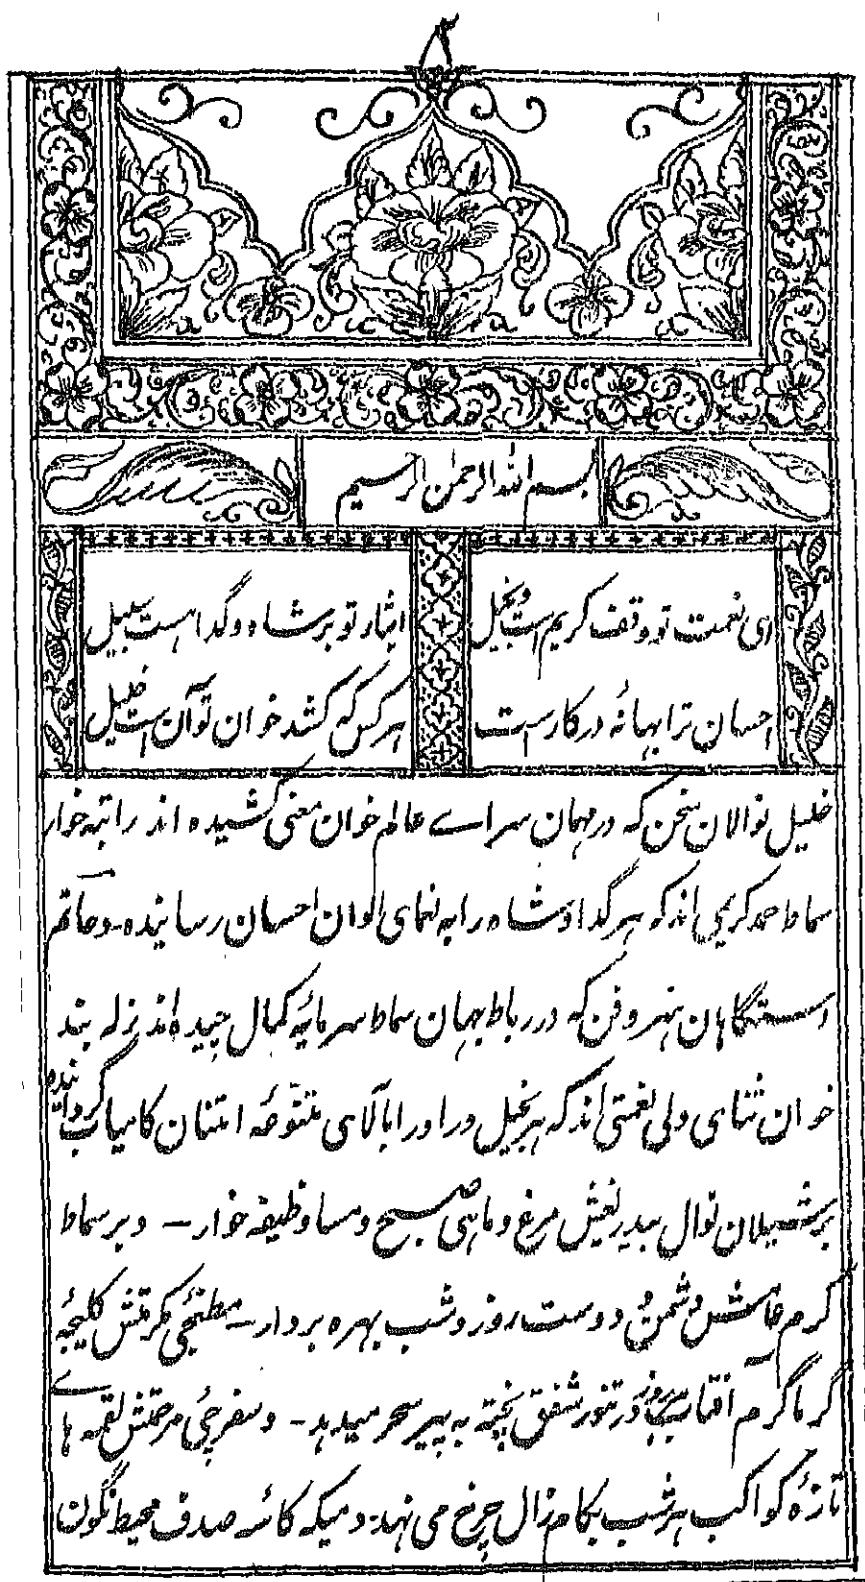 ۲
بسم الله الرحمن الرحیم
ای نعمت تو وقف کریم است و بخیل
ایثار تو بر شاه و گدا هست سبیل
احسان ترا بهانهٔ در کار است
هر کس که کشد خوان تو آن است خلیل
خلیل نوالان سخن که در مهمان سراے عالم خوان معنی کشیده اند راتبه خوار
سماط حمد کریمی اند که هر گدا و شاه را به نعمای الوان احسان رسانیده - و حاتم
دستگاهان هنر و فن که در رباط جهان سماط سرمایهٔ کمال چیده اند زله بند
خوان ثنای ولی نعمتی اند که هر بخیل و راد را با آلای متنوعه امتنان کامیاب گردانیده
بر شیلان نوال بیدریغش مرغ و ماهی صبح و مسا وظیفه خوار - و بر سماط
کرم عامش دشمن و دوست روز و شب بهره بردار - مطبخی مکرمتش کلیچهٔ
گرماگرم آفتاب هر روز در تنور شفق پخته به پیر سحر میدهد - و سفرچی مرحمتش لقمه هاے
تازهٔ کواکب هر شب بکام زال چرخ می نهد - دمیکه کاسه صدف محیط نگون